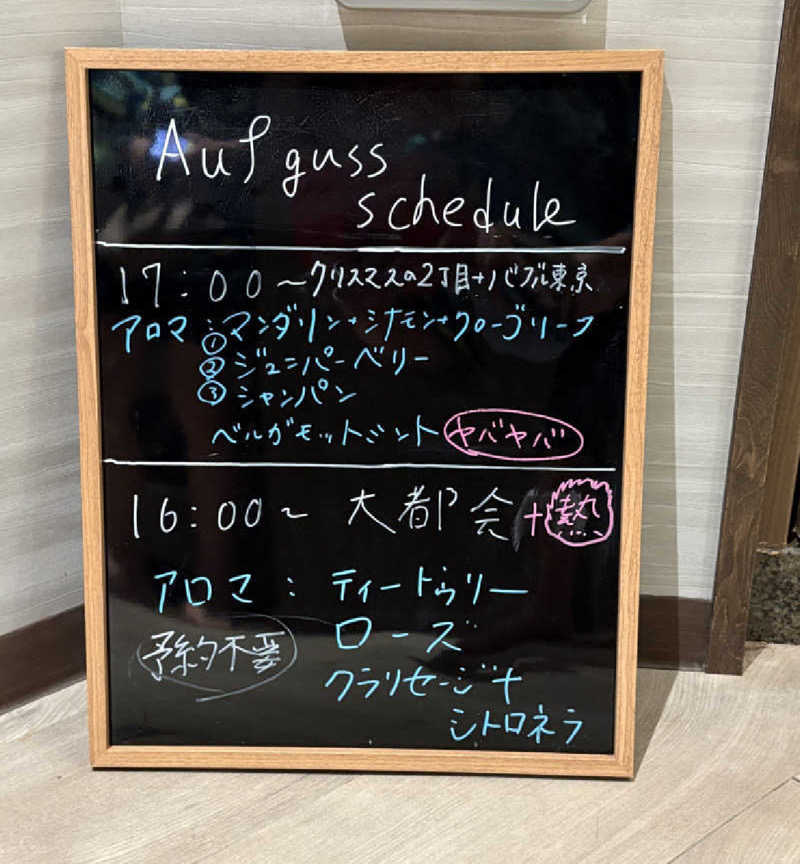 Aufguss
schedule
17:00～クリスマスの2丁目+バブル東京
アロマ:①マンダリン+シナモン+クローブリーフ
②ジュニパーベリー
③シャンパン
ベルガモットミント ヤバヤバ
16:00～ 大都会+熱
アロマ: ティートゥリー
予約不要 ローズ
クラリセージ+
シトロネラ